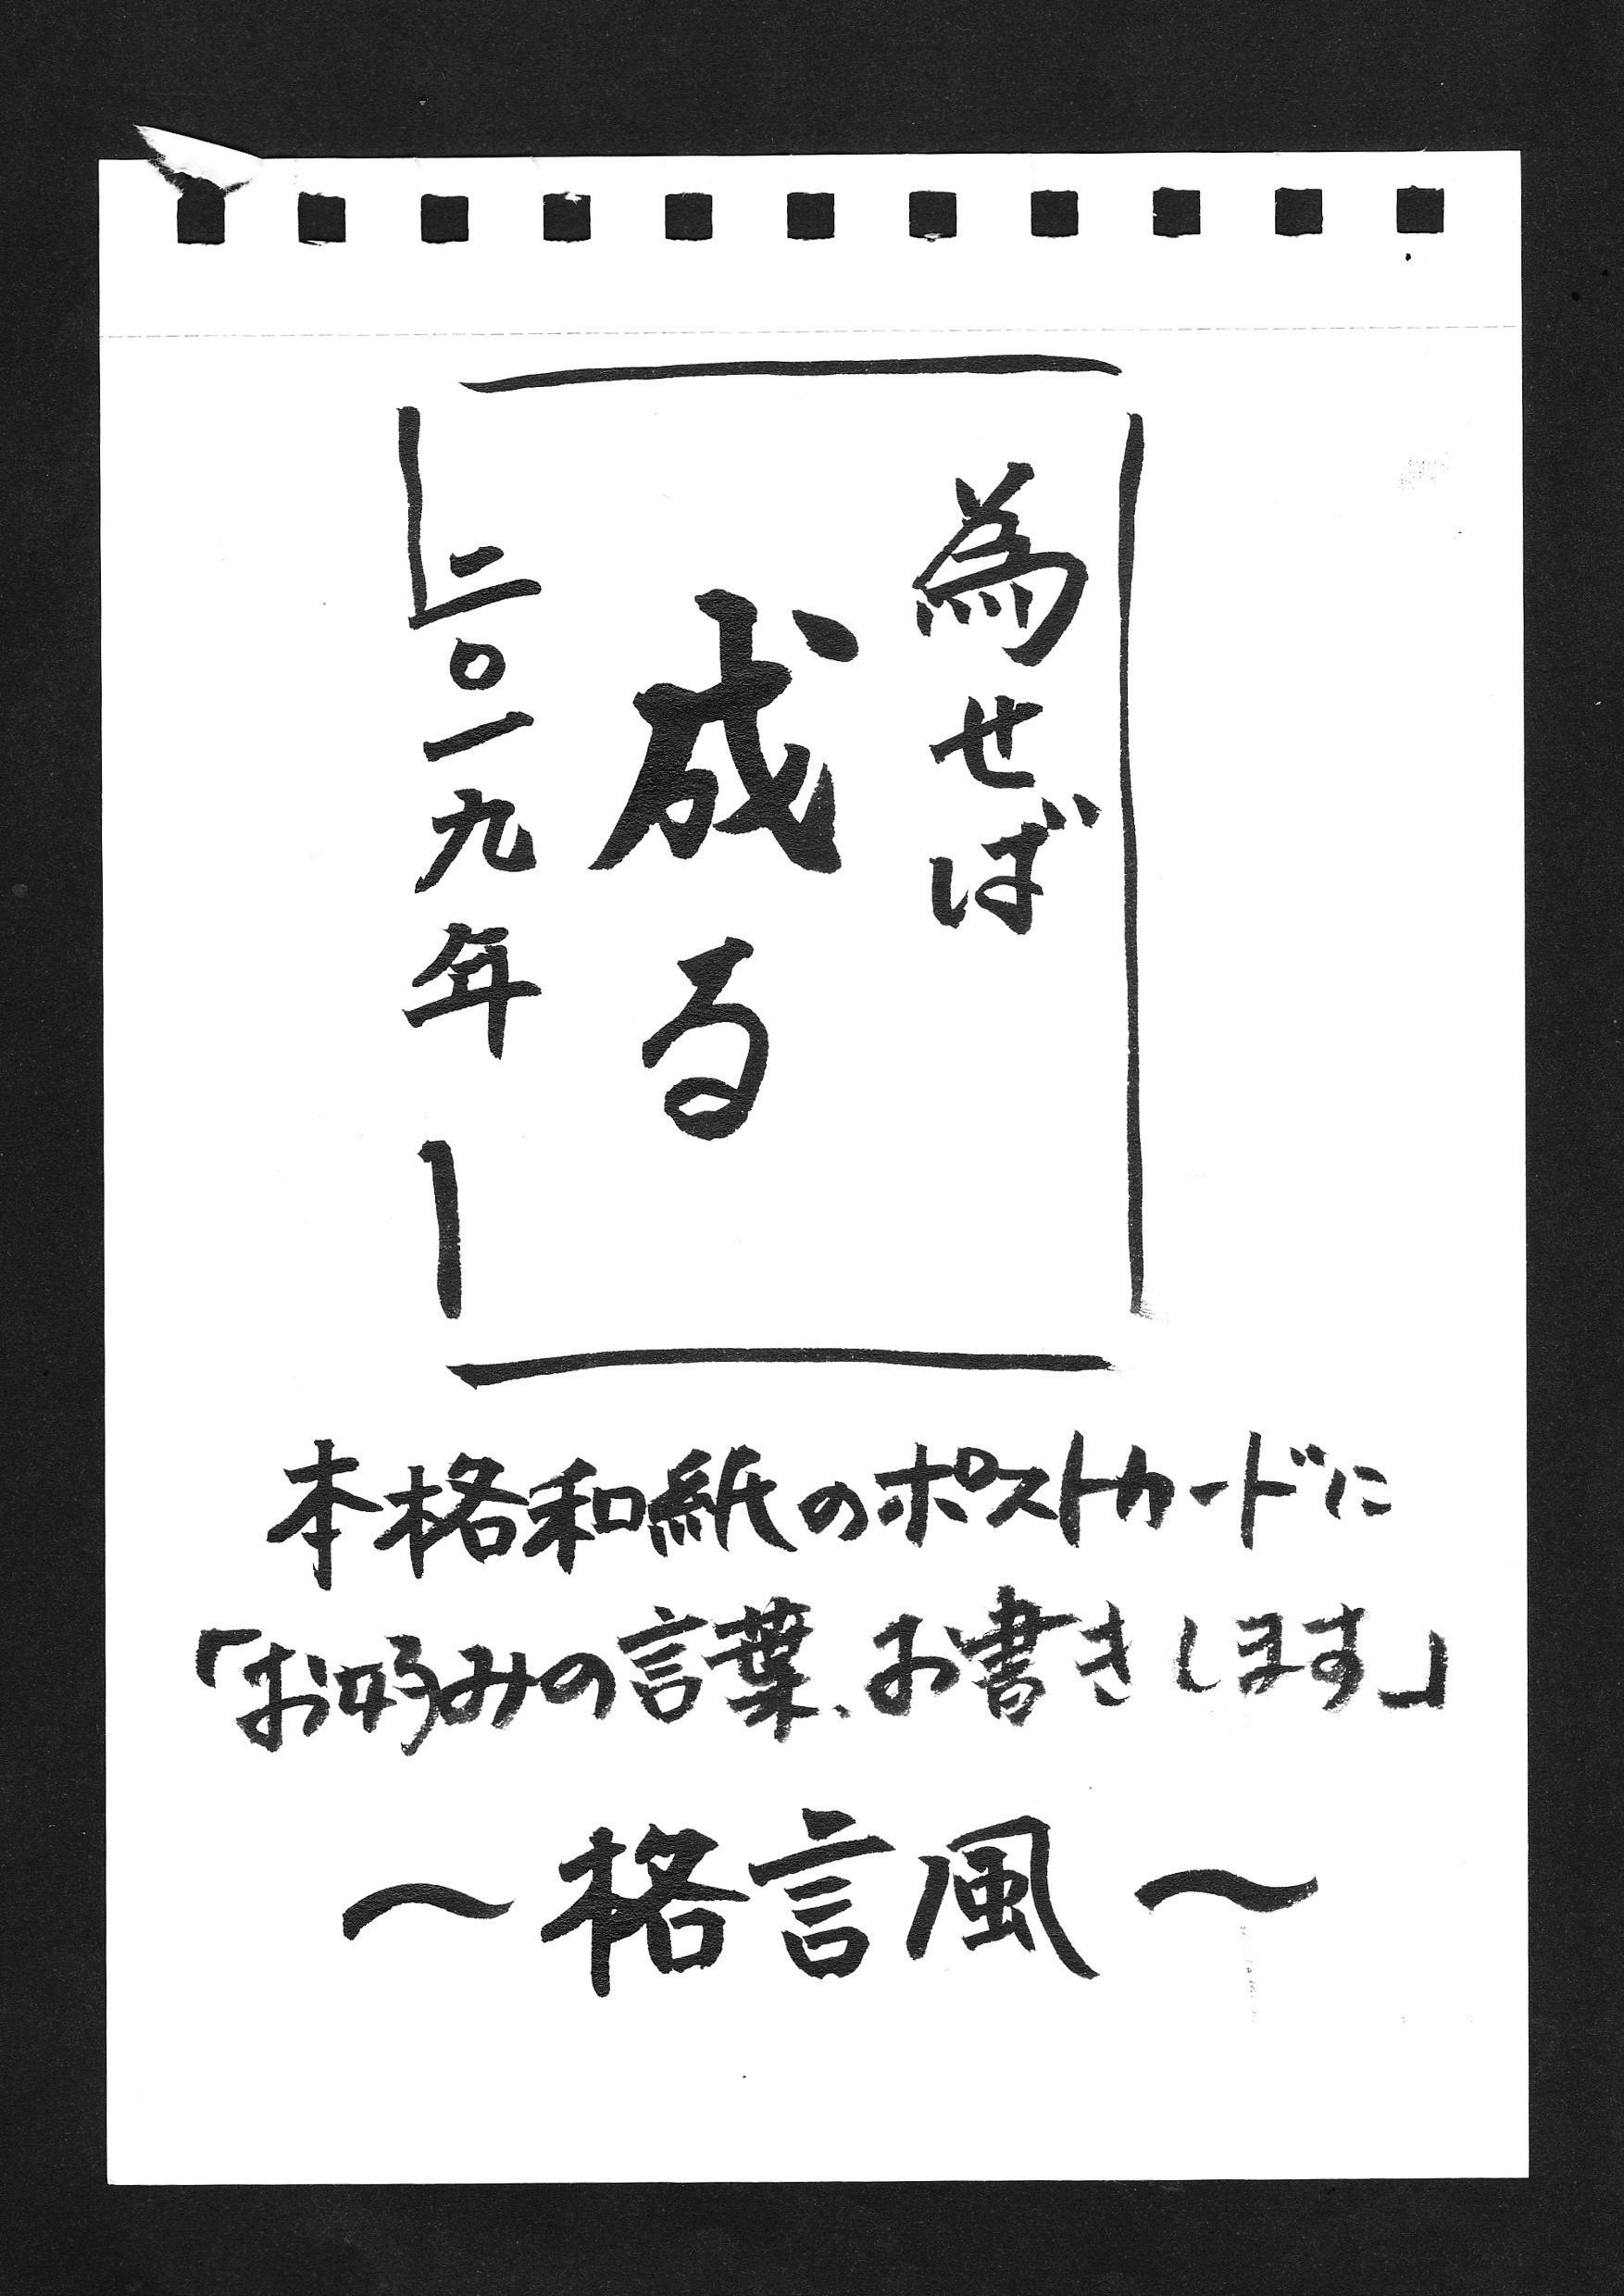 為せば
成る
二〇一九年
本格和紙のポストカードに
「お好みの言葉、お書きします」
～格言風～